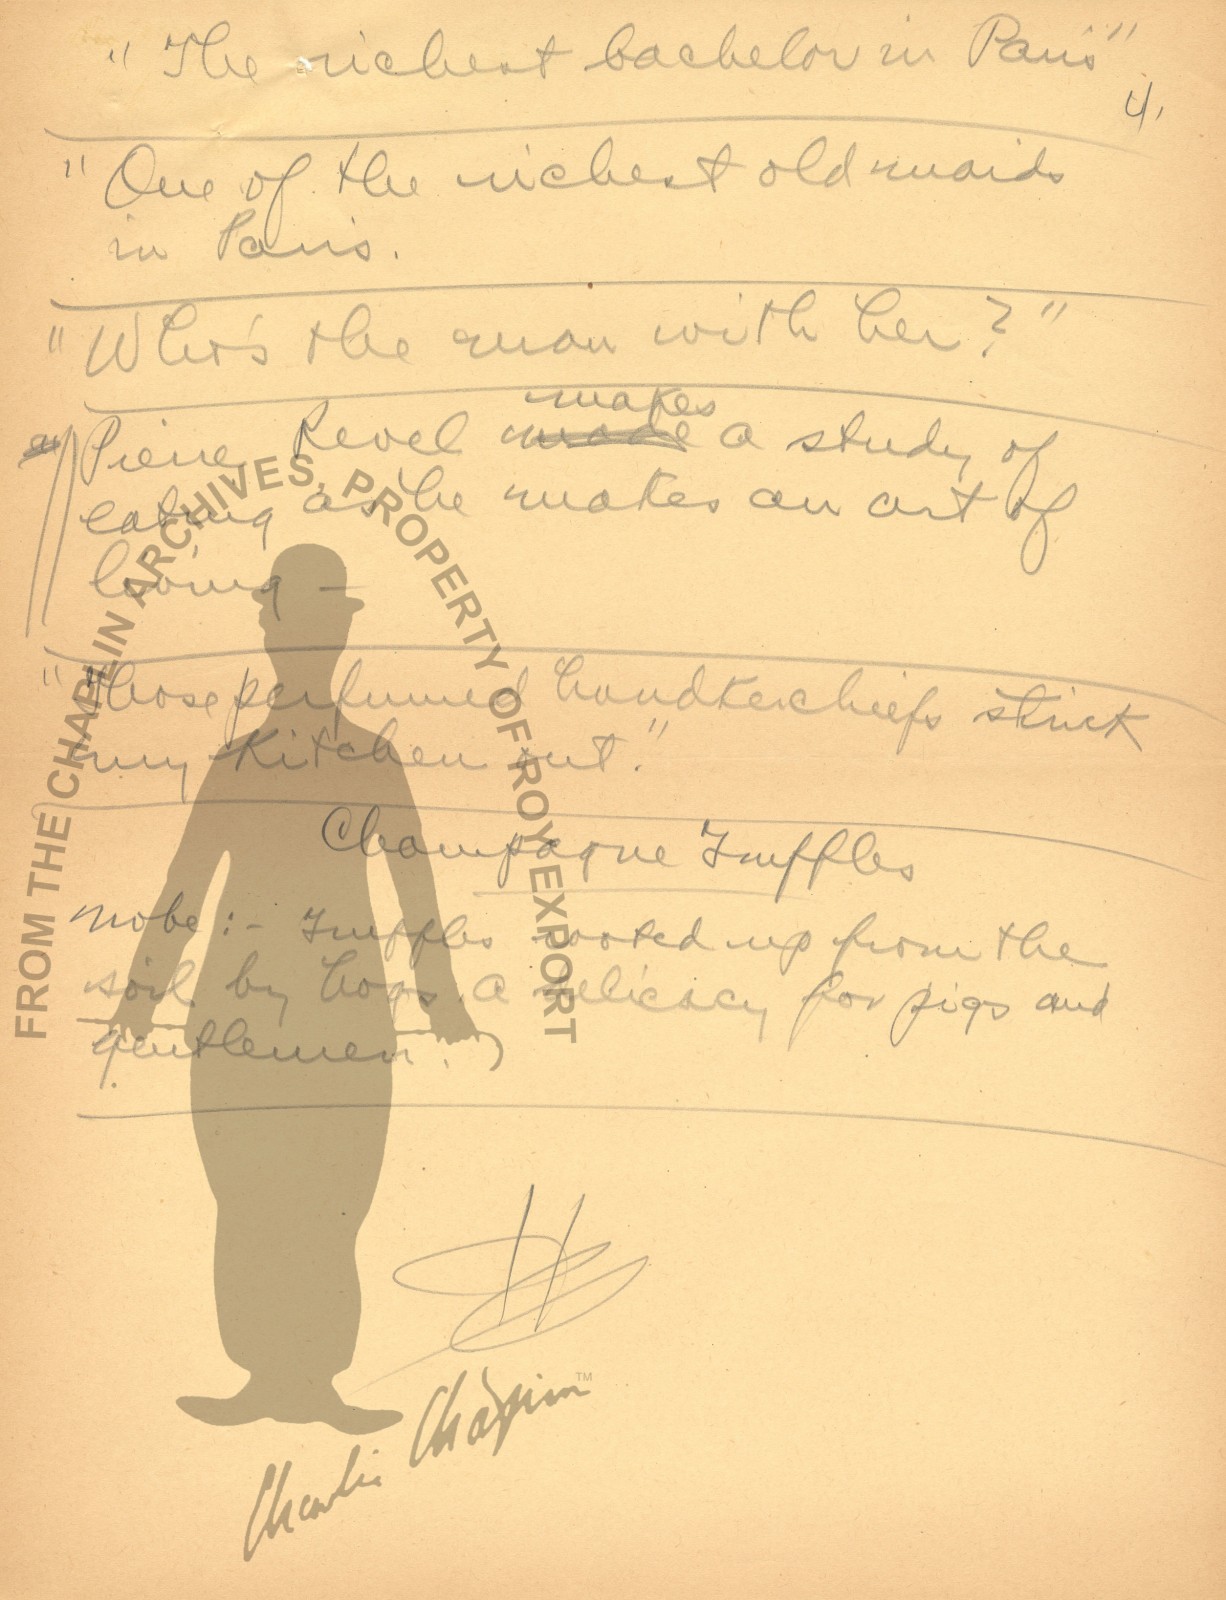 "The richest bachelor in Paris"
4.
"One of the richest old maids
in Paris.
"Who's the man with her?"
makes
Pierre Revel made a study of
eating as he makes an art of
loving –
"Those perfumed handkerchiefs stink
my kitchen out."
Champagne Truffles
Note:- Truffles rooted up from the
soil by hogs. A delicacy for pigs and
gentlemen.
FROM THE CHAPLIN ARCHIVES, PROPERTY OF ROY EXPORT
Charlie Chaplin™